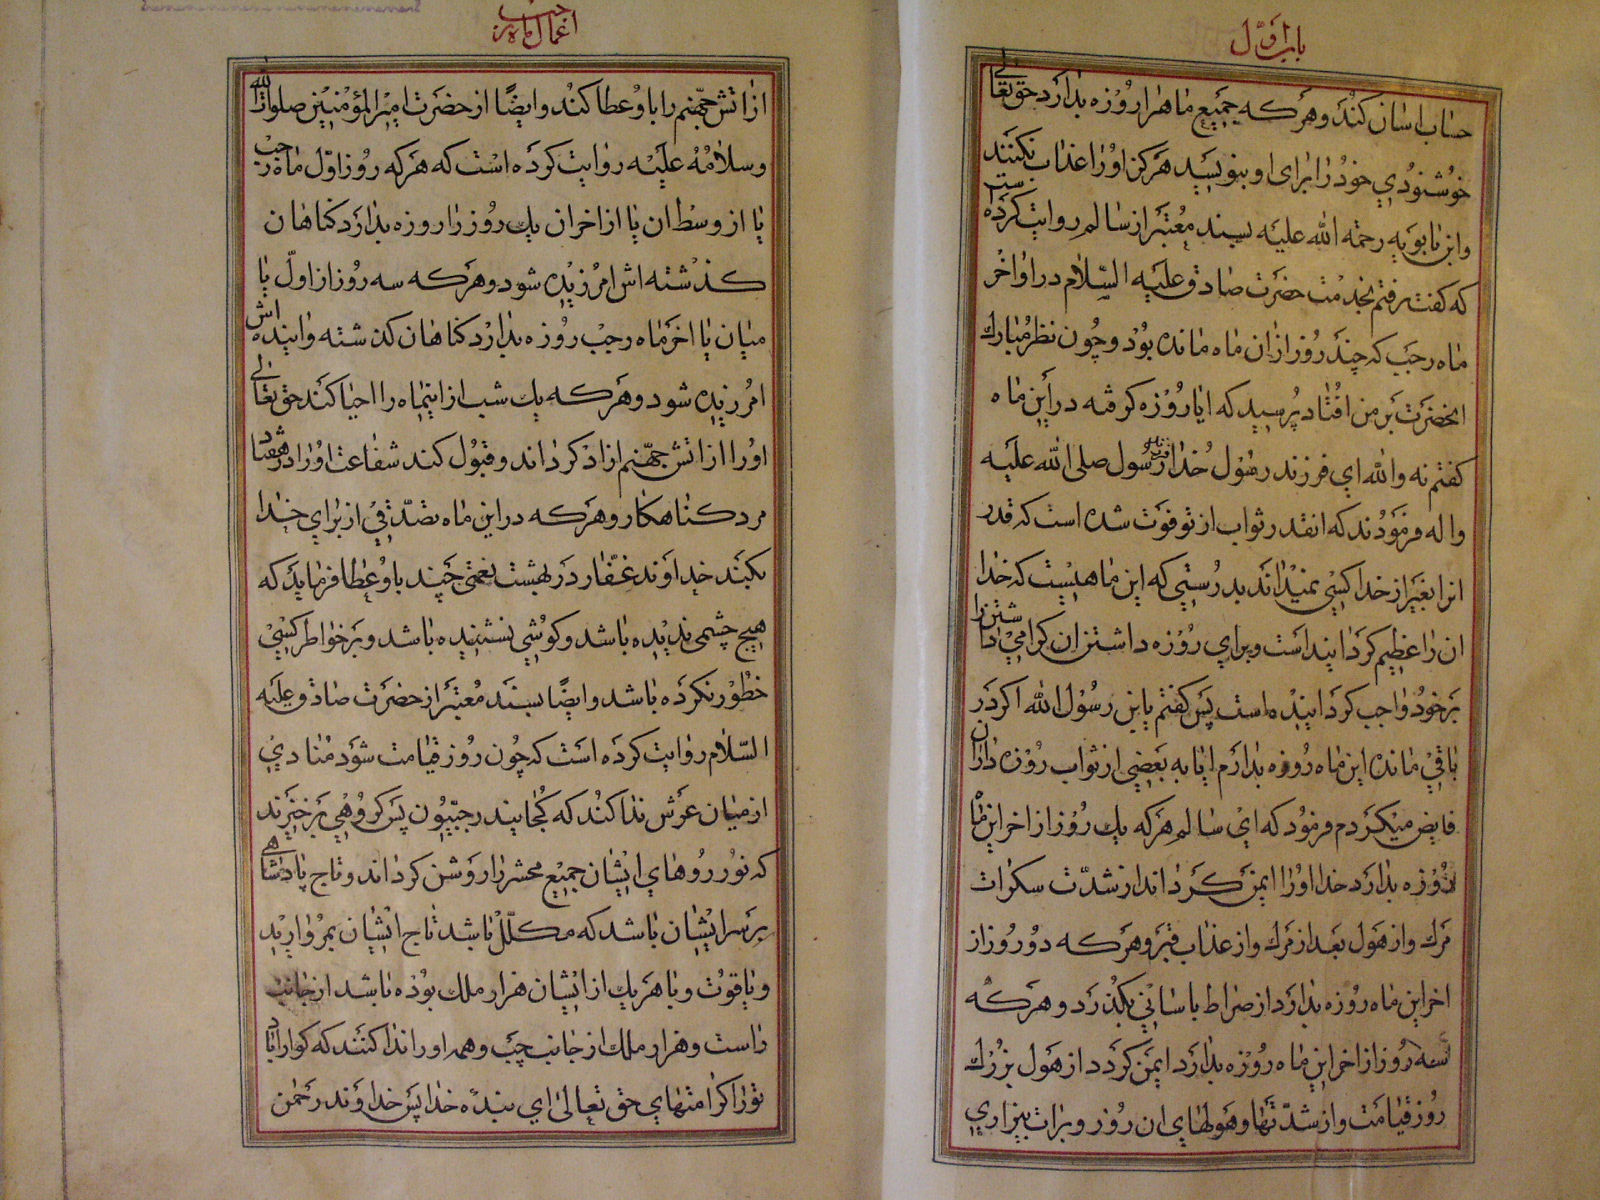 باب اوّل
حساب اسان کند و هرکه جمیع ماه را روزه بدارد حق تعالی
خوشنودی خود را برای او بنویسد و هرکز او را عذاب نکند
و ابن بابویه رحمة الله علیه بسند معتبر از سالم روایت کرده است
که کفت رفتم بخدمت حضرت صادق علیه السّلام در اواخر
ماه رجب که چند روز از ان ماه مانده بود و چون نظر مبارك
انحضرت بر من افتاد پرسید که ایا روزه کرفته در این ماه
کفتم نه والله ای فرزند رسول خدا رسول صلی الله علیه
و اله فرمودند که انقدر ثواب از تو فوت شده است که قدر
انرا بغیر از خدا کسی نمیداند بدرستی که این ماهیست که خدا
ان را عظیم کردانیده است و برای روزه داشتن ان کرامی داشتن را
بر خود واجب کردانیده است پس کفتم یابن رسول الله اکر در
باقی مانده این ماه روزه بدارم ایا به بعضی از ثواب روزه داران
فایض میکردم فرمود که ای سالم هرکه یك روز از اخر این ماه
روزه بدارد خدا او را ایمن کرداند از شدّت سکرات
مرك و از هول بعد از مرك و از عذاب قبر و هرکه دو روز از
اخر این ماه روزه بدارد از صراط باسانی بکذرد و هرکه
سه روز از اخر این ماه روزه بدارد ایمن کردد از هول بزرك
روز قیامت و از شدّتها و هولهای ان روز و برات بیزاری
اعمال ماه رجب
از اتش جهّنم را باو عطا کند و ایضًا از حضرت امیر المؤمنین صلوات الله
و سلامه علیه روایت کرده است که هرکه روز اوّل ماه رجب
یا از وسط ان یا از اخر ان یك روز را روزه بدارد کناهان
کذشته اش امرزیده شود و هرکه سه روز از اوّل یا
میان یا اخر ماه رجب روزه بدارد کناهان کذشته و اینده اش
امرزیده شود و هرکه یك شب از اینماه را احیا کند حق تعالی
او را از اتش جهّنم ازاد کرداند و قبول کند شفاعت او را در هفتاد
مرد کناهکار و هرکه در این ماه تصدّقی از برای خدا
بکند خداوند غفّار در بهشت نعمتی چند باو عطا فرماید که
هیچ چشمی ندیده باشد و کوشی نشنیده باشد و بر خواطر کسی
خطور نکرده باشد و ایضًا بسند معتبر از حضرت صادق علیه
السّلام روایت کرده است که چون روز قیامت شود منادی
از میان عرش ندا کند که کجایند رجبیّون پس کروهی برخیزند
که نور روهای ایشان جمیع محشر را روشن کرداند و تاج پادشاهی
بر سر ایشان باشد که مکلّل باشد تاج ایشان بمروارید
و یاقوت و با هریك از ایشان هزار ملك بوده باشد از جانب
راست و هزار ملك از جانب چپ و همه او را ندا کنند که کوارا باد
تو را کرامتهای حق تعالی ای بنده خدا پس خداوند رحمن